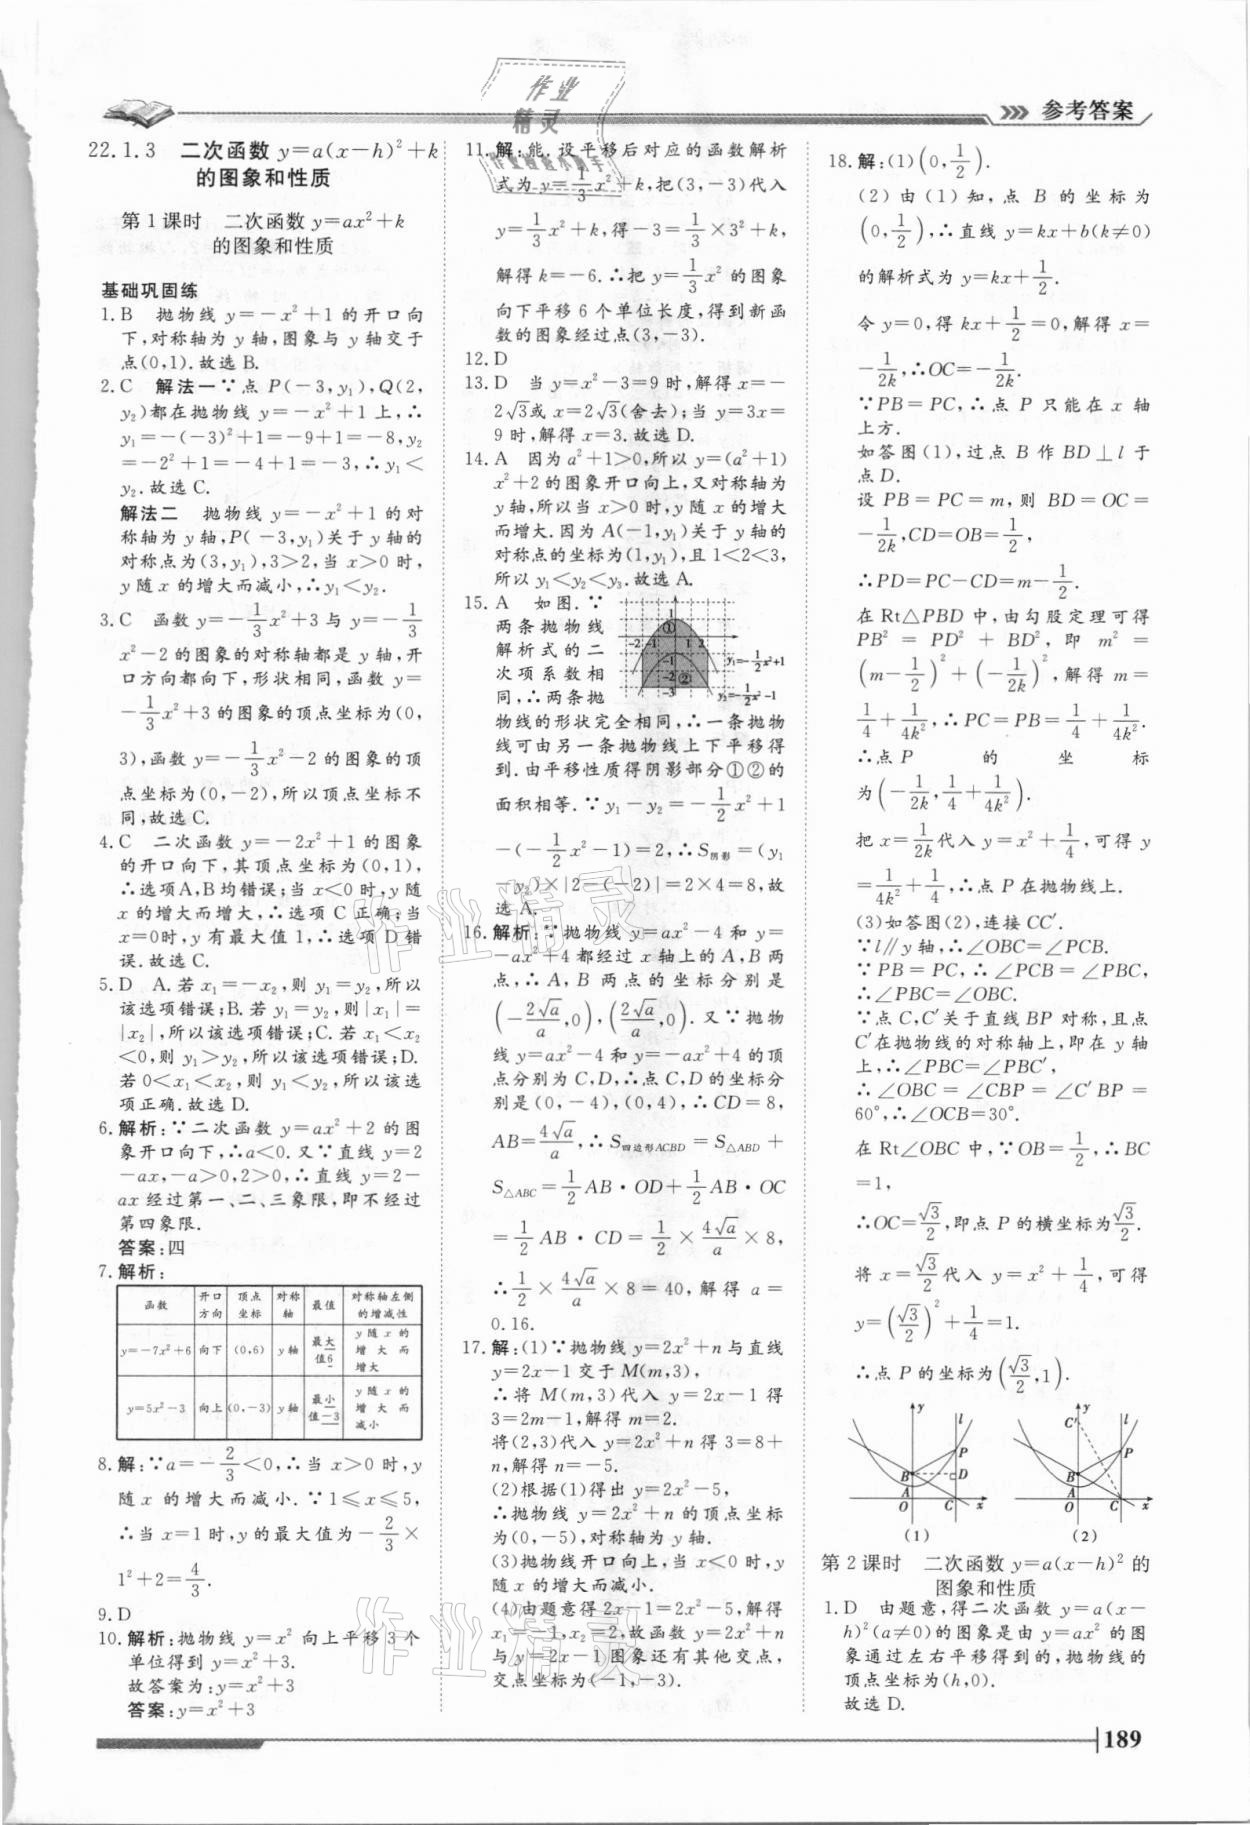 参考答案
22.1.3 二次函数 y=a(x-h)²+k
的图象和性质
第1课时 二次函数 y=ax²+k
的图象和性质
基础巩固练
1.B 抛物线 y=-x²+1 的开口向
下,对称轴为 y 轴,图象与 y 轴交于
点(0,1).故选B.
2.C 解法一∵点 P(-3,y₁),Q(2,
y₂)都在抛物线 y=-x²+1 上,∴
y₁=-(-3)²+1=-9+1=-8,y₂
=-2²+1=-4+1=-3,∴y₁<
y₂.故选C.
解法二 抛物线 y=-x²+1 的对
称轴为 y 轴,P(-3,y₁)关于 y 轴的
对称点为(3,y₁),3>2,当 x>0 时,
y 随 x 的增大而减小,∴y₁<y₂.
3.C 函数 y=-1/3x²+3 与 y=-1/3
x²-2 的图象的对称轴都是 y 轴,开
口方向都向下,形状相同,函数 y=
-1/3x²+3 的图象的顶点坐标为(0,
3),函数 y=-1/3x²-2 的图象的顶
点坐标为(0,-2),所以顶点坐标不
同,故选C.
4.C 二次函数 y=-2x²+1 的图象
的开口向下,其顶点坐标为(0,1),
∴选项A,B均错误;当 x<0 时,y 随
x 的增大而增大,∴选项C正确;当
x=0时,y 有最大值1,∴选项D错
误.故选C.
5.D A.若 x₁=-x₂,则 y₁=y₂,所以
该选项错误;B.若 y₁=y₂,则|x₁|=
|x₂|,所以该选项错误;C.若 x₁<x₂
<0,则 y₁>y₂,所以该选项错误;D.
若 0<x₁<x₂,则 y₁<y₂,所以该选
项正确.故选D.
6.解析:∵二次函数 y=ax²+2 的图
象开口向下,∴a<0.又∵直线 y=2
-ax,-a>0,2>0,∴直线 y=2-
ax 经过第一、二、三象限,即不经过
第四象限.
答案:四
7.解析:
函数 开口方向 顶点坐标 对称轴 最值 对称轴左侧的增减性
y=-7x²+6 向下 (0,6) y轴 最大值6 y 随 x 的增大而增大
y=5x²-3 向上 (0,-3) y轴 最小值-3 y 随 x 的增大而减小
8.解:∵a=-2/3<0,∴当 x>0 时,y
随 x 的增大而减小.∵1≤x≤5,
∴当 x=1 时,y 的最大值为-2/3×
1²+2=4/3.
9.D
10.解析:抛物线 y=x² 向上平移3个
单位得到 y=x²+3.
故答案为:y=x²+3
答案:y=x²+3
11.解:能.设平移后对应的函数解析
式为 y=1/3x²+k,把(3,-3)代入
y=1/3x²+k,得-3=1/3×3²+k,
解得 k=-6.∴把 y=1/3x² 的图象
向下平移6个单位长度,得到新函
数的图象经过点(3,-3).
12.D
13.D 当 y=x²-3=9 时,解得 x=-
2√3或 x=2√3(舍去);当 y=3x=
9时,解得 x=3.故选D.
14.A 因为 a²+1>0,所以 y=(a²+1)
x²+2 的图象开口向上,又对称轴为
y 轴,所以当 x>0 时,y 随 x 的增大
而增大.因为 A(-1,y₁)关于 y 轴的
对称点的坐标为(1,y₁),且 1<2<3,
所以 y₁<y₂<y₃.故选A.
15.A 如图.∵
两条抛物线
解析式的二
次项系数相
同,∴两条抛
物线的形状完全相同,∴一条抛物
线可由另一条抛物线上下平移得
到.由平移性质得阴影部分①②的
面积相等.∵y₁-y₂=-1/2x²+1
-(-1/2x²-1)=2,∴S阴影=(y₁
-y₂)×|2-(-2)|=2×4=8,故
选A.
1 ① -2 -1 1 2 -1 -2 ② -3
y₁=-1/2x²+1
y₂=-1/2x²-1
16.解析:∵抛物线 y=ax²-4 和 y=
-ax²+4 都经过 x 轴上的 A,B 两
点,∴A,B 两点的坐标分别是
(-2√a/a,0),(2√a/a,0).又∵抛物
线 y=ax²-4 和 y=-ax²+4 的顶
点分别为 C,D,∴点 C,D 的坐标分
别是(0,-4),(0,4),∴CD=8,
AB=4√a/a,∴S四边形ACBD=S△ABD+
S△ABC=1/2AB·OD+1/2AB·OC
=1/2AB·CD=1/2×4√a/a×8,
∴1/2×4√a/a×8=40,解得 a=
0.16.
17.解:(1)∵抛物线 y=2x²+n 与直线
y=2x-1 交于 M(m,3),
∴将 M(m,3)代入 y=2x-1 得
3=2m-1,解得 m=2.
将(2,3)代入 y=2x²+n 得 3=8+
n,解得 n=-5.
(2)根据(1)得出 y=2x²-5,
∴抛物线 y=2x²+n 的顶点坐标
为(0,-5),对称轴为 y 轴.
(3)抛物线开口向上,当 x<0 时,y
随 x 的增大而减小.
(4)由题意得2x-1=2x²-5,解得
x₁=-1,x₂=2,故函数 y=2x²+n
与 y=2x-1 图象还有其他交点,
交点坐标为(-1,-3).
18.解:(1)(0,1/2).
(2)由(1)知,点 B 的坐标为
(0,1/2),∴直线 y=kx+b(k≠0)
的解析式为 y=kx+1/2.
令 y=0,得 kx+1/2=0,解得 x=
-1/2k,∴OC=-1/2k.
∵PB=PC,∴点 P 只能在 x 轴
上方.
如答图(1),过点 B 作 BD⊥l 于
点D.
设 PB=PC=m,则 BD=OC=
-1/2k,CD=OB=1/2,
∴PD=PC-CD=m-1/2.
在 Rt△PBD 中,由勾股定理可得
PB²=PD²+BD²,即 m²=
(m-1/2)²+(-1/2k)²,解得 m=
1/4+1/4k²,∴PC=PB=1/4+1/4k².
∴点 P 的坐标
为(-1/2k,1/4+1/4k²).
把 x=1/2k代入 y=x²+1/4,可得 y
=1/4k²+1/4,∴点 P 在抛物线上.
(3)如答图(2),连接 CC′.
∵l∥y 轴,∴∠OBC=∠PCB.
∵PB=PC,∴∠PCB=∠PBC,
∴∠PBC=∠OBC.
∵点 C,C′关于直线 BP 对称,且点
C′在抛物线的对称轴上,即在 y 轴
上,∴∠PBC=∠PBC′,
∴∠OBC=∠CBP=∠C′BP=
60°,∴∠OCB=30°.
在 Rt∠OBC 中,∵OB=1/2,∴BC
=1,
∴OC=√3/2,即点 P 的横坐标为√3/2.
将 x=√3/2代入 y=x²+1/4,可得
y=(√3/2)²+1/4=1.
∴点 P 的坐标为(√3/2,1).
y l P B D A O C x
(1)
y C′ l P B A O C x
(2)
第2课时 二次函数 y=a(x-h)² 的
图象和性质
1.D 由题意,得二次函数 y=a(x-
h)²(a≠0)的图象是由 y=ax² 的图
象通过左右平移得到的,抛物线的
顶点坐标为(h,0).
故选D.
189
作业
精灵
作业精灵
作业精灵